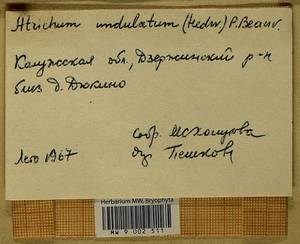 Atrichum undulatum (Hedw.) P. Beauv.
Калужская обл., Дзержинский р-н
близ д. Дюкино
собр.
Лето 1967
опр. Пешкова
Herbarium MW, Bryophyta
MW 9 002 511